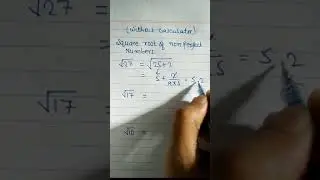 (without calculator)
Square root of non perfect
Numbers
√27 = √25+2
= 5 + 2/2×5 = 5.2
√17 =
√10 =
= 5.2